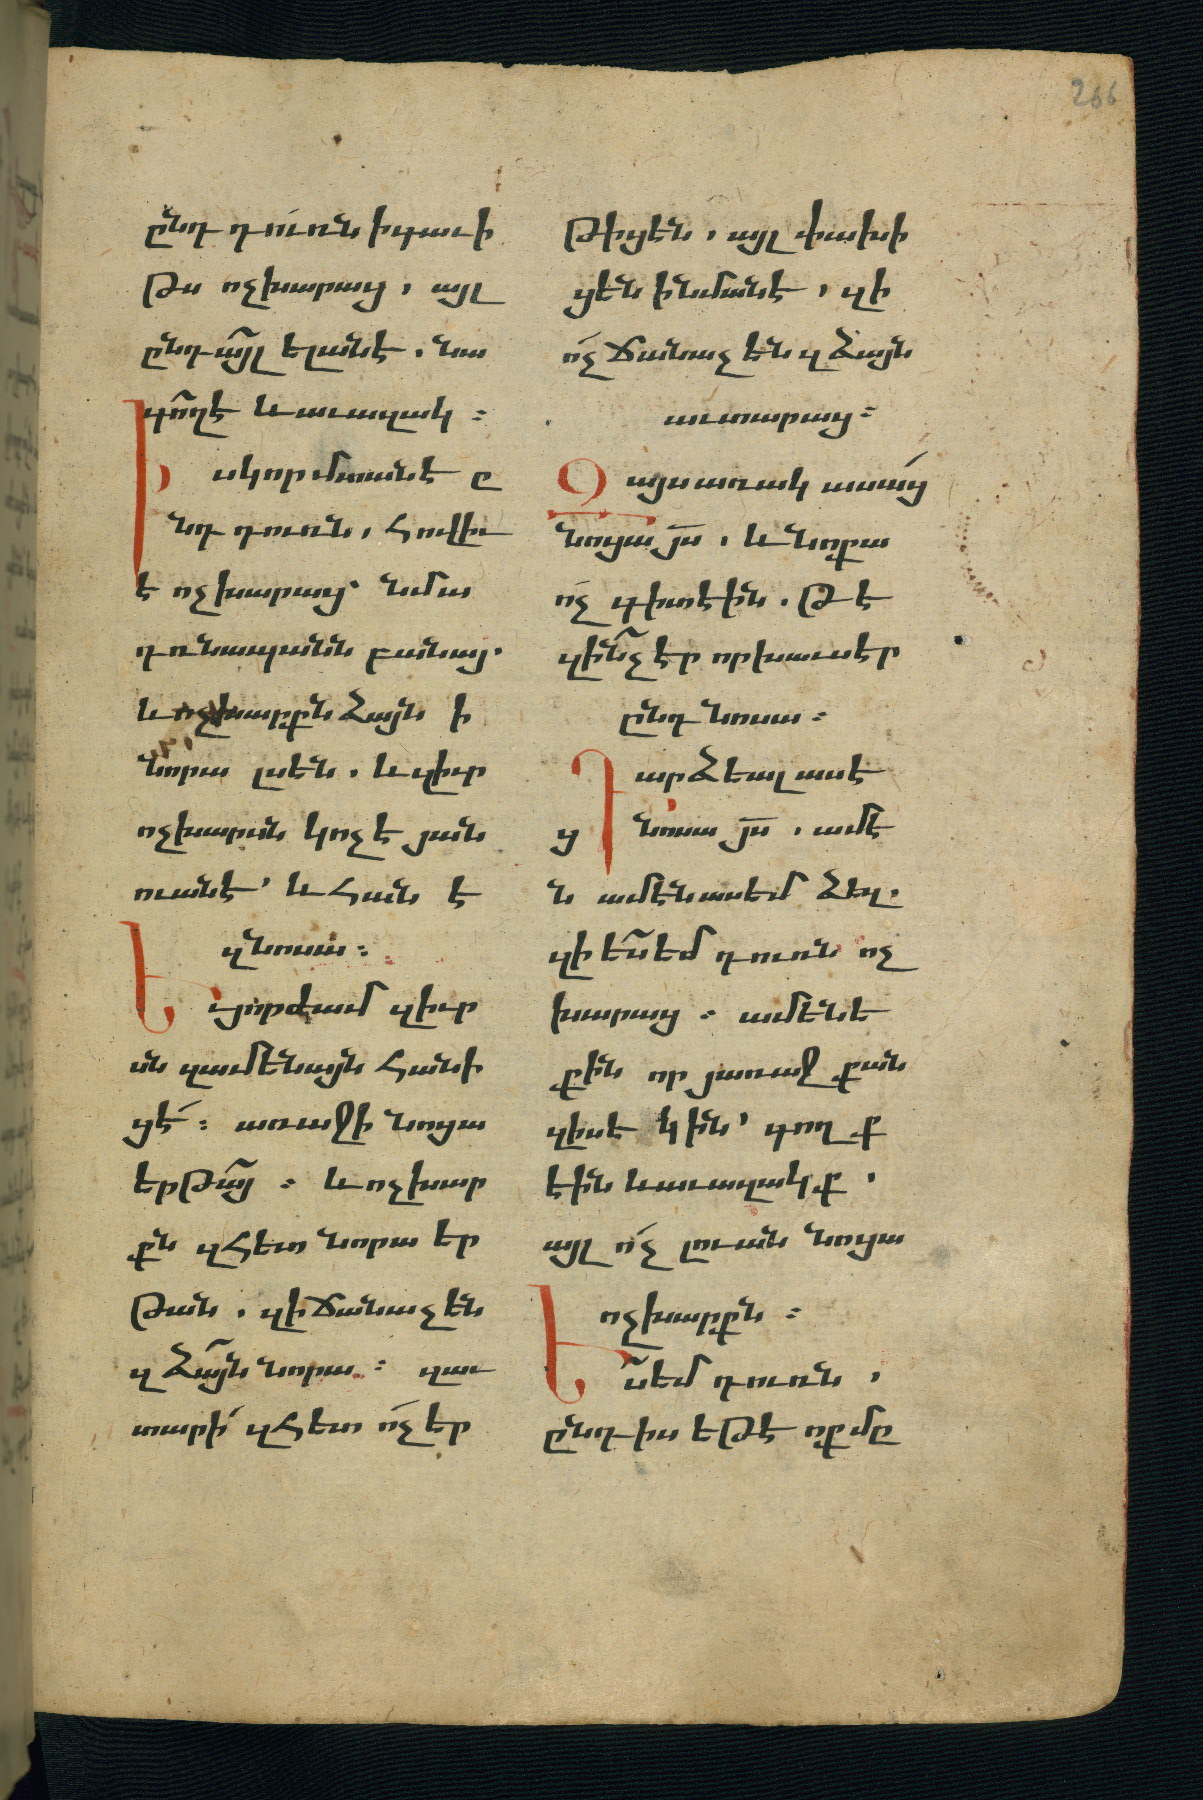 266
ընդ դուռն ի գաւի
թս ոչխարաց, այլ
ընդ այլ ելանէ. նա
գող է և աւազակ :
Իսկ որ մտանէ ը
նդ դուռն, հովիւ
է ոչխարաց. նմա
դռնապանն բանայ.
և ոչխարքն ձայն ի
նորա լսեն. և զիւր
ոչխարսն կոչէ յան
ուանէ՝ և հան է
զնոսա :
Եւ յորժամ զիւր
սն զամենայն հանի
ցէ : առաջի նոցա
երթայ : և ոչխար
քն զհետ նորա եր
թան. զի ճանաչեն
զձայն նորա : զաւ
տարի զհետ ոչ եր
թիցեն, այլ փախի
ցեն ինմանէ, զի
ոչ ճանաչեն զձայն
աւտարաց :
Զայս առակ ասաց
նոցա յս, և նոքա
ոչ գիտէին. թէ
զինչ էր որ խաւսէր
ընդ նոսա :
Դարձեալ ասէ
ց նոսա յս, ամէ
ն ամէն ասեմ ձեզ.
զի ես եմ դուռն ոչ
խարաց : ամենե
քին որ յառաջ քան
զիս եկին՝ գող ք
էին և աւազակք,
այլ ոչ լուան նոցա
ոչխարքն :
Ես եմ դուռն,
ընդ իս եթէ ոք մը